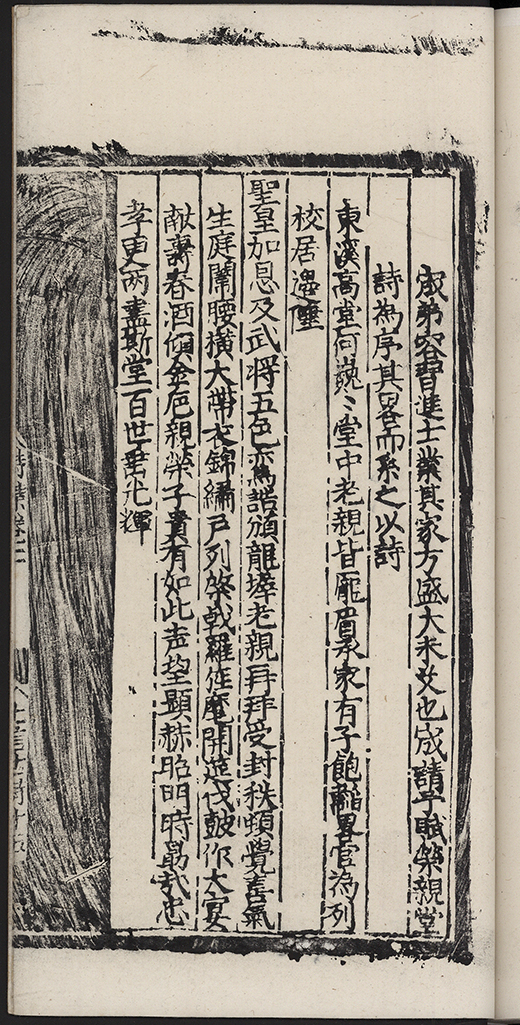 成弟容習進士業其家方盛大未艾也成請予賦榮親堂
詩為序其畧而系之以詩
東溪高堂何巍〻堂中老親皆厖眉承家有子飽韜畧官為列
校居邊陲
聖皇加恩及武将五色鸞誥頒龍墀老親再拜受封秩頓覺喜氣
生庭闈腰橫大帶衣錦繡戶列棨戟羅旌麾開筵伐鼓作大宴
献壽春酒傾金巵親榮子貴有如此声塋顕赫昭明時勗哉忠
孝更两盡斯堂百世垂光輝
詩集卷二